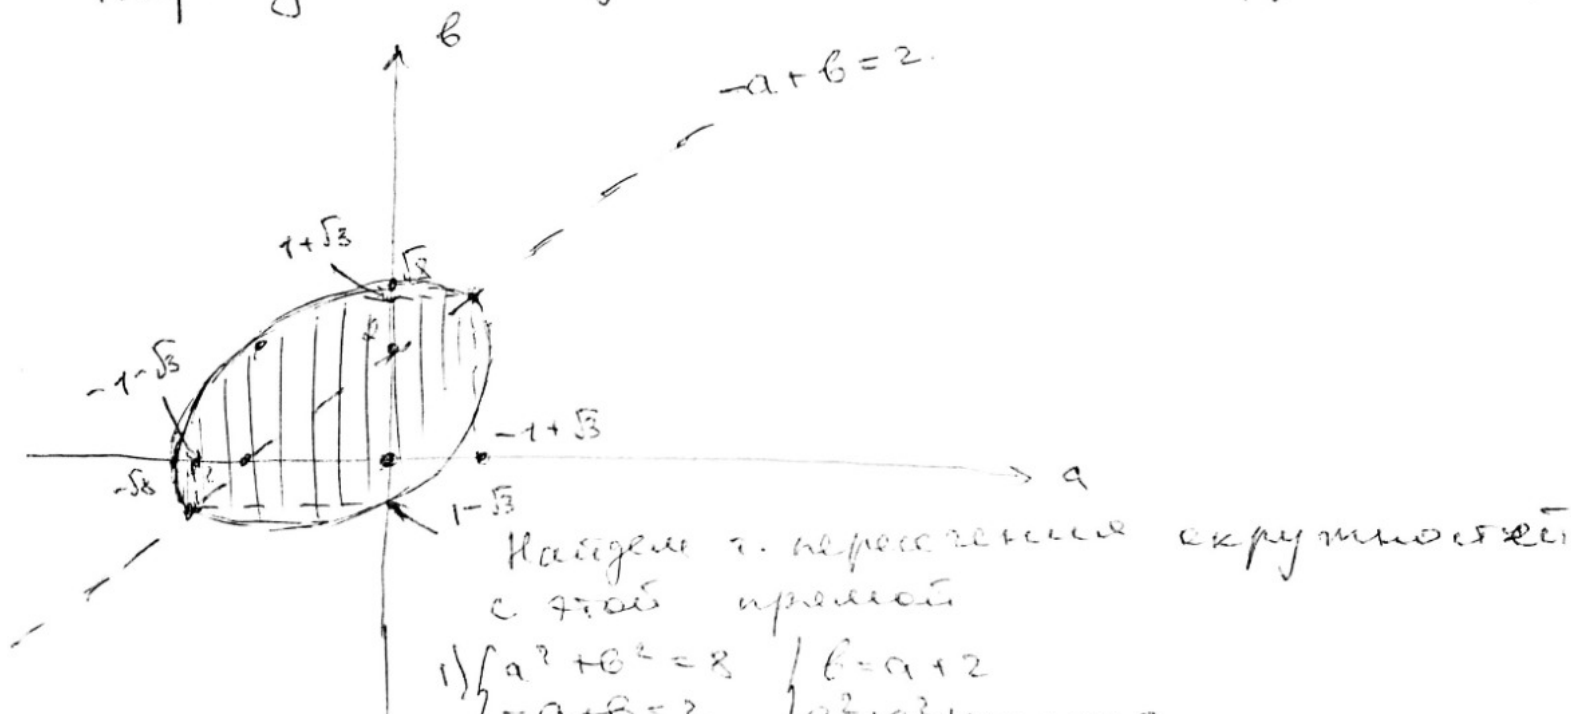 в
-a+в=2.
1+√3
√8
-1-√3
-1+√3
-√8
a
1-√3
Найдем т. пересечения окружностей
с этой прямой
1) { a²+в²=8 { в=a+2
-a+в=2